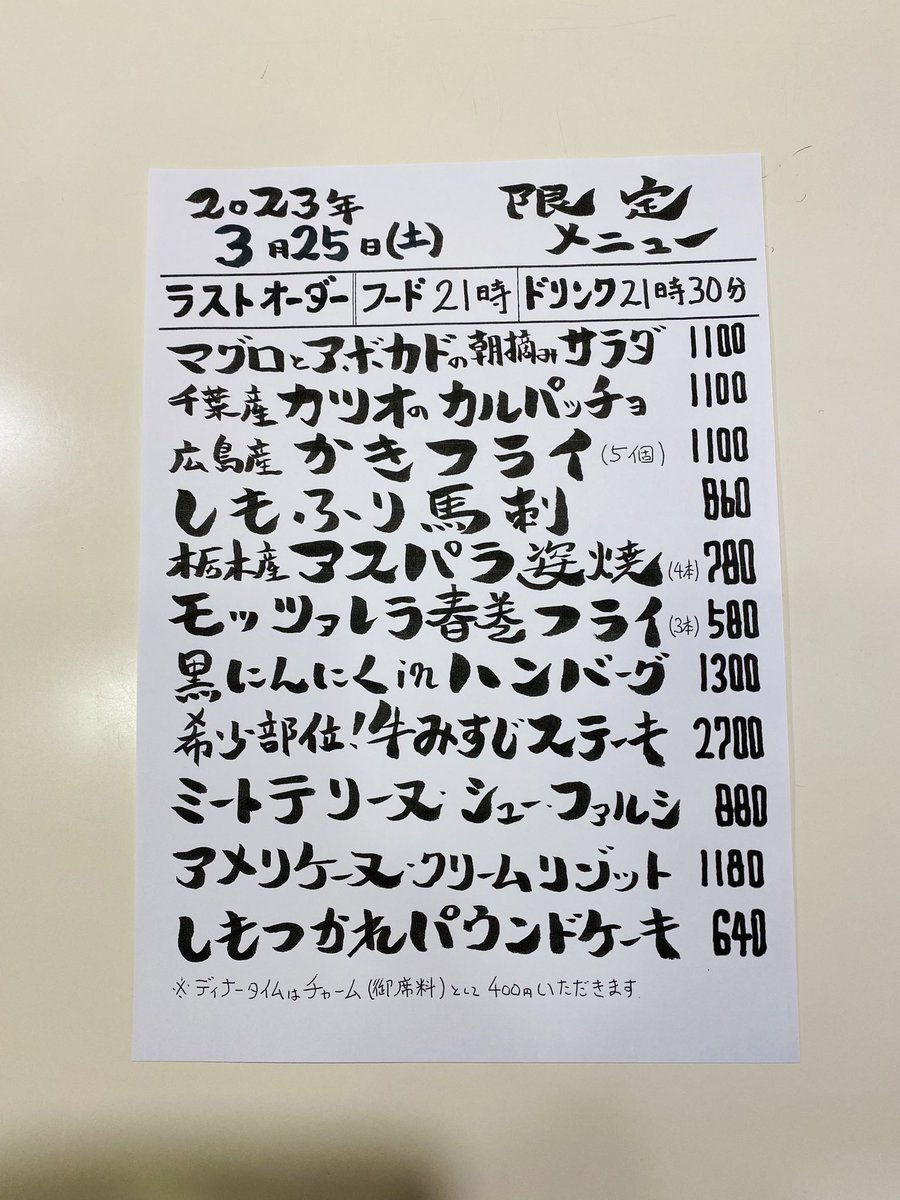 2023年 限定
3月25日(土) メニュー
ラストオーダー フード21時 ドリンク21時30分
マグロとアボカドの朝摘みサラダ 1100
千葉産カツオのカルパッチョ 1100
広島産かきフライ(5個) 1100
しもふり馬刺 860
栃木産アスパラ姿焼(4本) 780
モッツァレラ春巻フライ(3本) 580
黒にんにくinハンバーグ 1300
希少部位!牛みすじステーキ 2700
ミートテリーヌ・シュー・ファルシ 880
アメリケーヌ・クリームリゾット 1180
しもつかれパウンドケーキ 640
※ディナータイムはチャーム(御席料)として400円いただきます